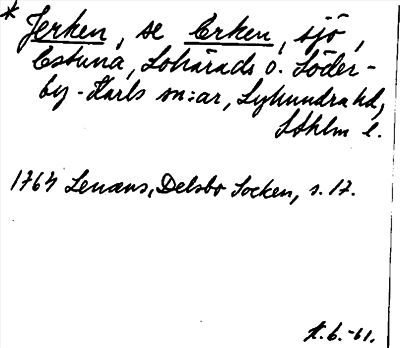 * Jerken, se Erken, sjö,
Estuna, Lohärads o. Söder-
by-Karls sn:ar, Lyhundra hd,
Sthlm l.
1764 Lenæus, Delsbo Socken, s. 17.
H.b.-61.